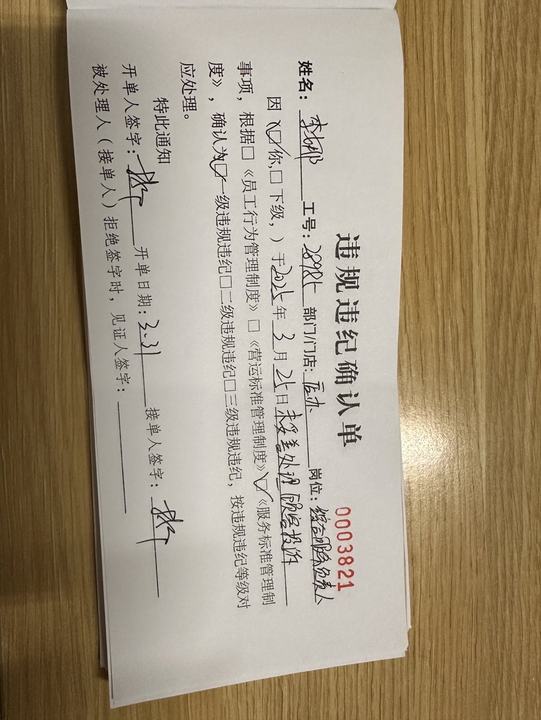 违规违纪确认单
0003821
姓名： 工号：28985 部门/门店：店办 岗位：综合服务负责人
因（☑你，□下级，）于2025年3月25日未妥善处理顾客投诉
事项，根据□《员工行为管理制度》□《营运标准管理制度》☑《服务标准管理制
度》，确认为☑一级违规违纪□二级违规违纪□三级违规违纪，按违规违纪等级对
应处理。
特此通知
开单人签字： 开单日期：3.31 接单人签字：
被处理人（接单人）拒绝签字时，见证人签字：